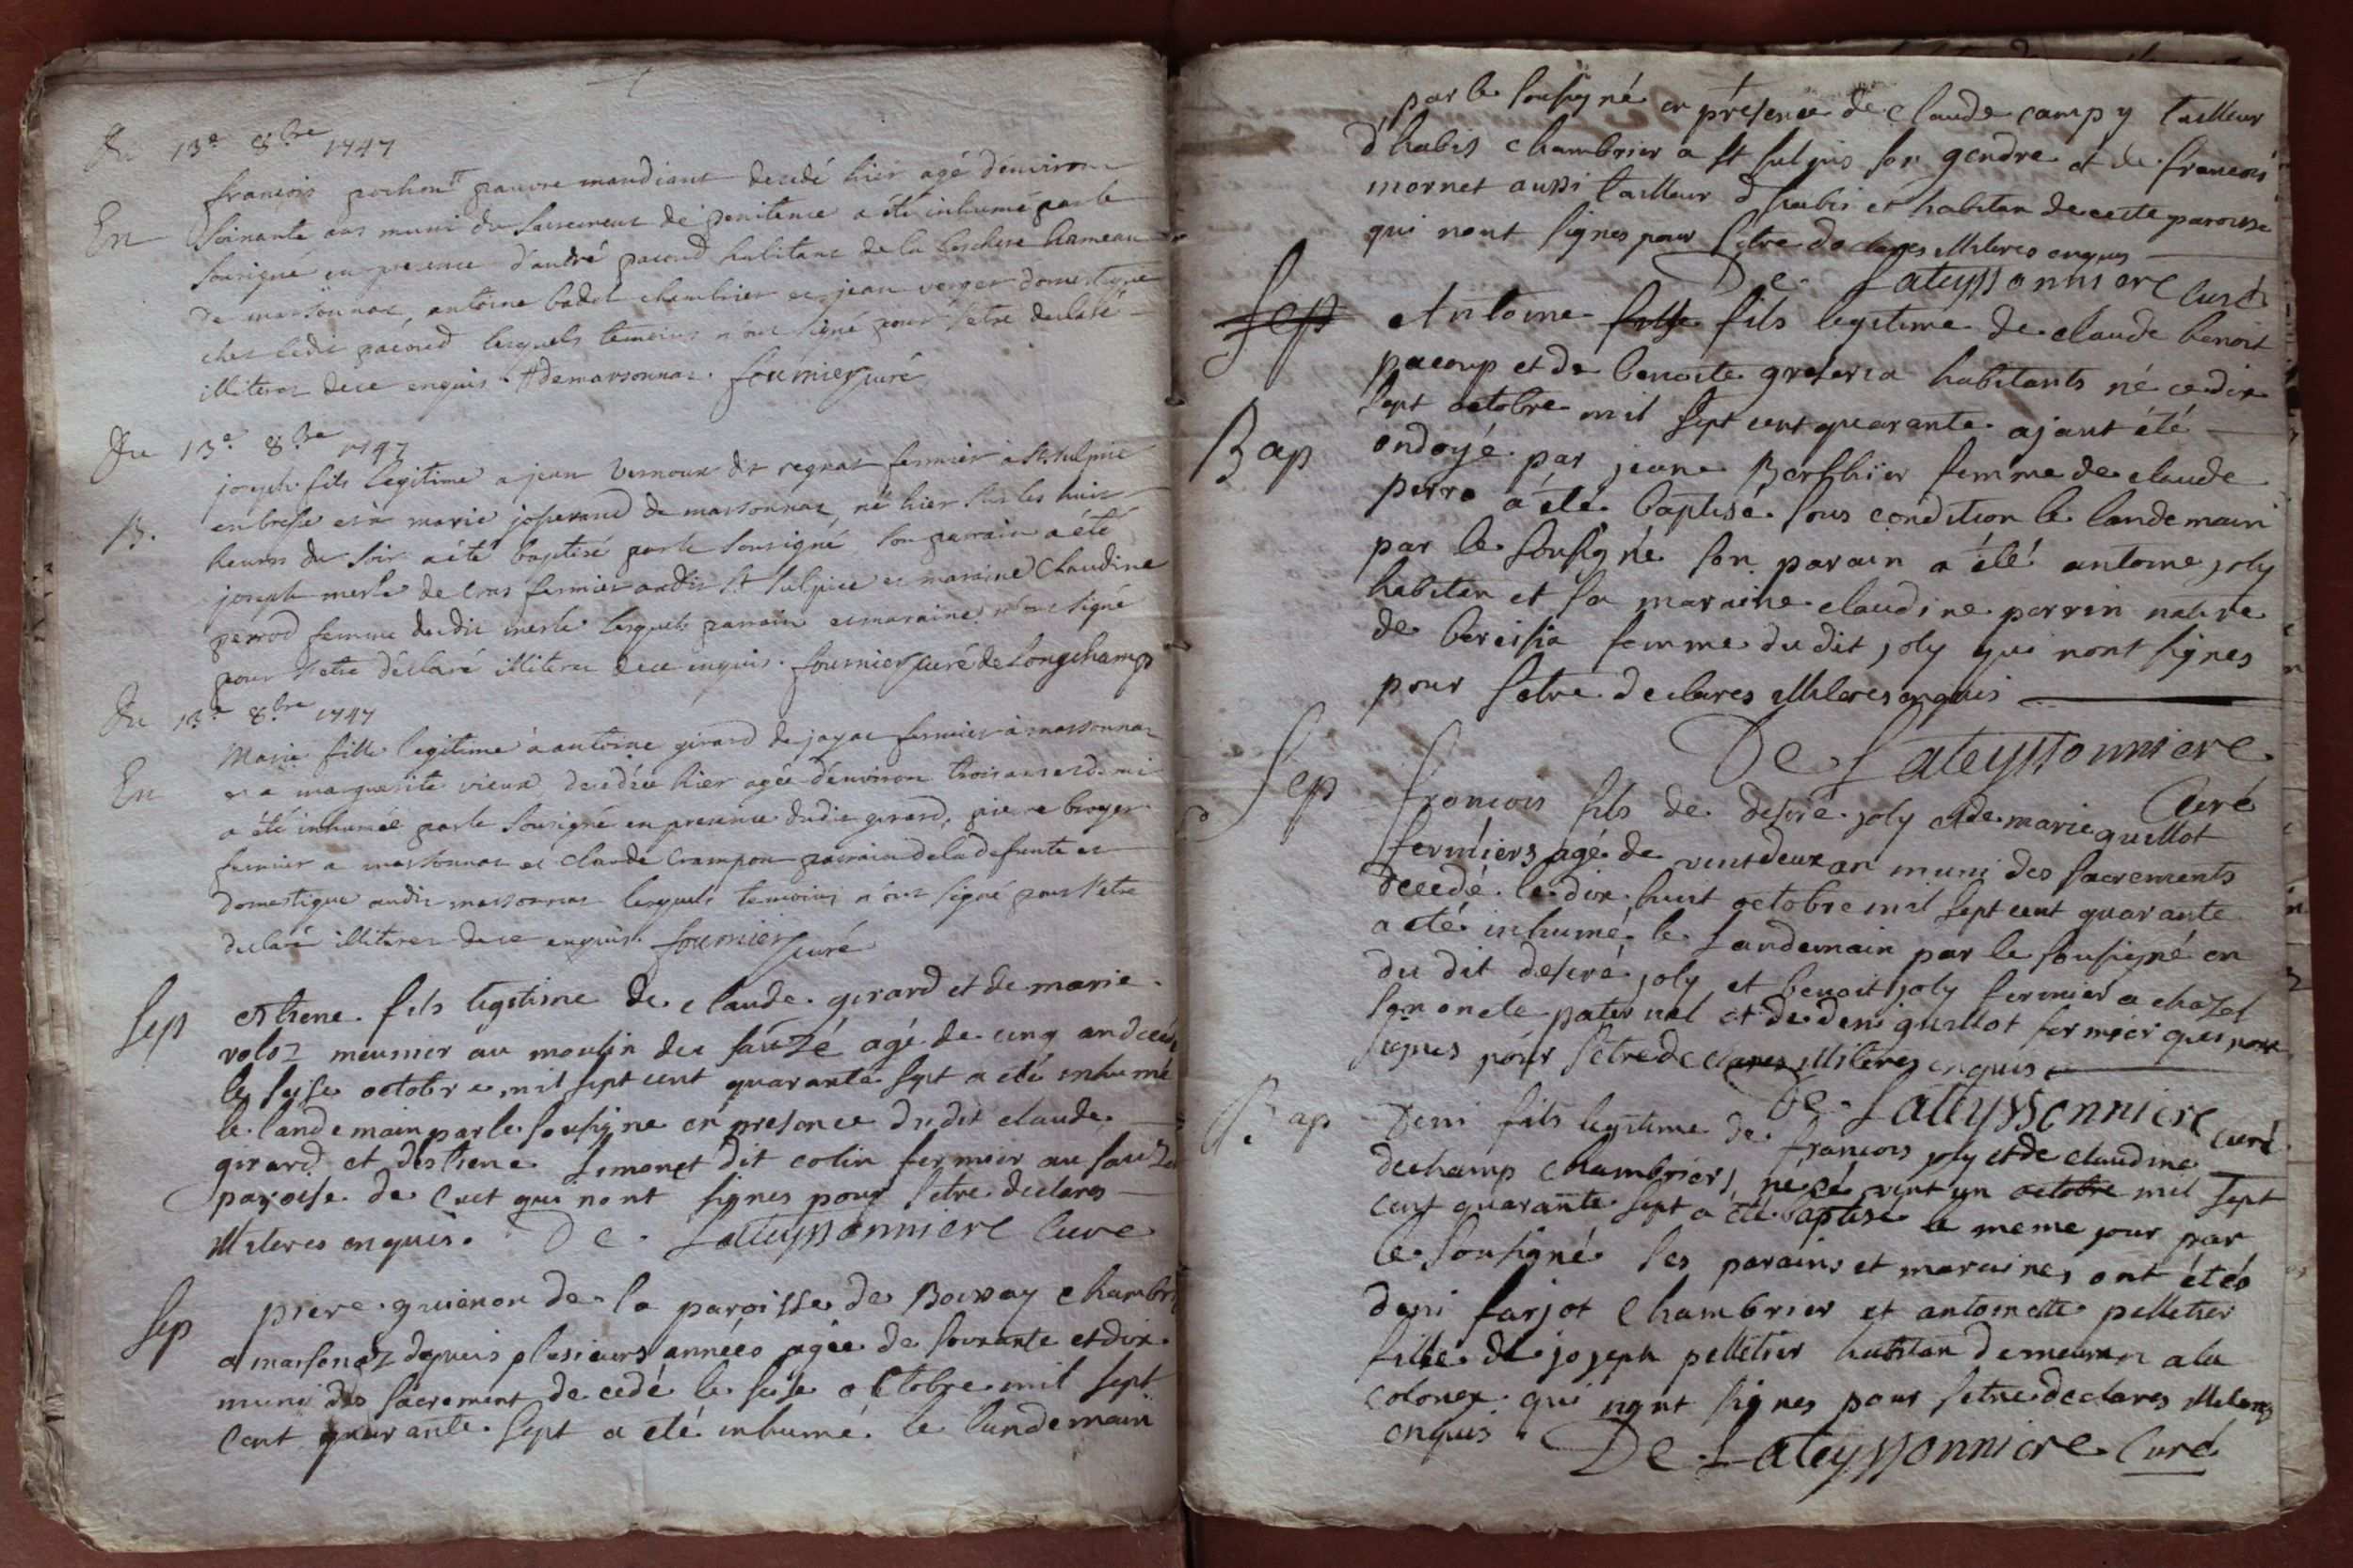 Du 13e 8bre 1747
En
françois pochon # pauvre mandiant decedé hier agé d'environ
soixante ans muni du sacrement de penitence a été inhumé par le
sousigné en presence d'andré pacoud habitant de la hameau
de marsonnaz, antoine badel chambrier et jean verger domestique
chez ledit pacoud lesquels temoins n'ont signé pour s'etre declaré
illiterez de ce enquis. # de marsonnaz. fournier curé
Du 13e 8bre 1747
B.
joseph fils legitime a jean Vernoux dit regnas fermier a St sulpice
en bresse et a marie josserand de marsonnaz né hier sur les huit
heures du soir a été baptisé par le sousigné, son parrain a été
joseph merle de fermier audit St Sulpice et maraine Claudine
perrod femme dudit merle lesquels parrain et maraine n'ont signé
pour s'etre déclaré illiterez de ce enquis. fournier curé de Longchamp
Du 13e 8bre 1747
En
Marie fille legitime a antoine girard de jayac fermier a marsonnaz
et a marguerite vieux decedée hier agée d'environ trois ans et demi
a été inhumée par le sousigné en presence dudit girard, pierre broyer
fermier a marsonnaz et Claude Crampon parrain de la defunte et
domestique audit marsonnaz lesquels temoins n'ont signé pour s'etre
declaré illiterez de ce enquis. fournier curé
Sep
Etiene fils legitime de claude girard et de marie
voloz meunier au moulin du sauzé agé de cinq an decedé
le seise octobre mil sept cent quarante sept a été inhumé
le landemain par le sousigne en presence du dit claude
girard et d'estiene Simonet dit colin fermier au sauzé
paroise de Cuet qui nont signes pour setre declares
illiteres enquis. De Lateyssonniere Cure
Sep
piere guienon de la paroisse de Boissay chambrier
a marsonaz depuis plusieurs années agée de soixante et dix
muni des sacrement decedé le seise octobre mil sept
cent quarante sept a été inhumé le landemain
par le sousigné en présence de claude campy tailleur
d'habis chambrier a st sulpis son gendre et de francois
mornet aussi tailleur d'habis et habitan de ceste paroisse
qui nont signes pour setre declares illiteres enquis
De Lateyssonniere Curé
Sep
Bap
Antoine fille fils legitime de claude benoit
pacoup et de benoite greseria habitants né ce dix
sept octobre mil sept cent quarante ajant été
ondoyé par jeane Berthier femme de claude
perra a été baptisé sous condition le landemain
par le sousigné son parain a été antoine joly
habitan et sa maraine claudine perrin native
de bereisia femme du dit joly qui nont signes
pour setre declares illiteres enquis
De Lateyssonniere
Curé
Sep
francois fils de desiré joly et de marie guillot
fermiers agé de vent deux an muni des sacrements
decedé le dix huit octobre mil sept cent quarante
a été inhumé le Landemain par le sousigné en
du dit desiré joly et benoit joly fermier a chazel
son oncle paternel et de deni guillot fermier qui nont
signes pour setre declares illiteres enquis
De Lateyssonniere curé
Bap
Deni fils legitime de francois joly et de claudine
dechamp chambriers, né ce vent un octobre mil sept
cent quarante sept a été baptisé le meme jour par
le sousigné ses parains et maraines ont étés
deni farjot chambrier et antoinette pelletier
fille de joseph pelletier habitan demeuran a la
colonex qui nont signes pour setre declares illiteres
enquis. De Lateyssonniere Curé